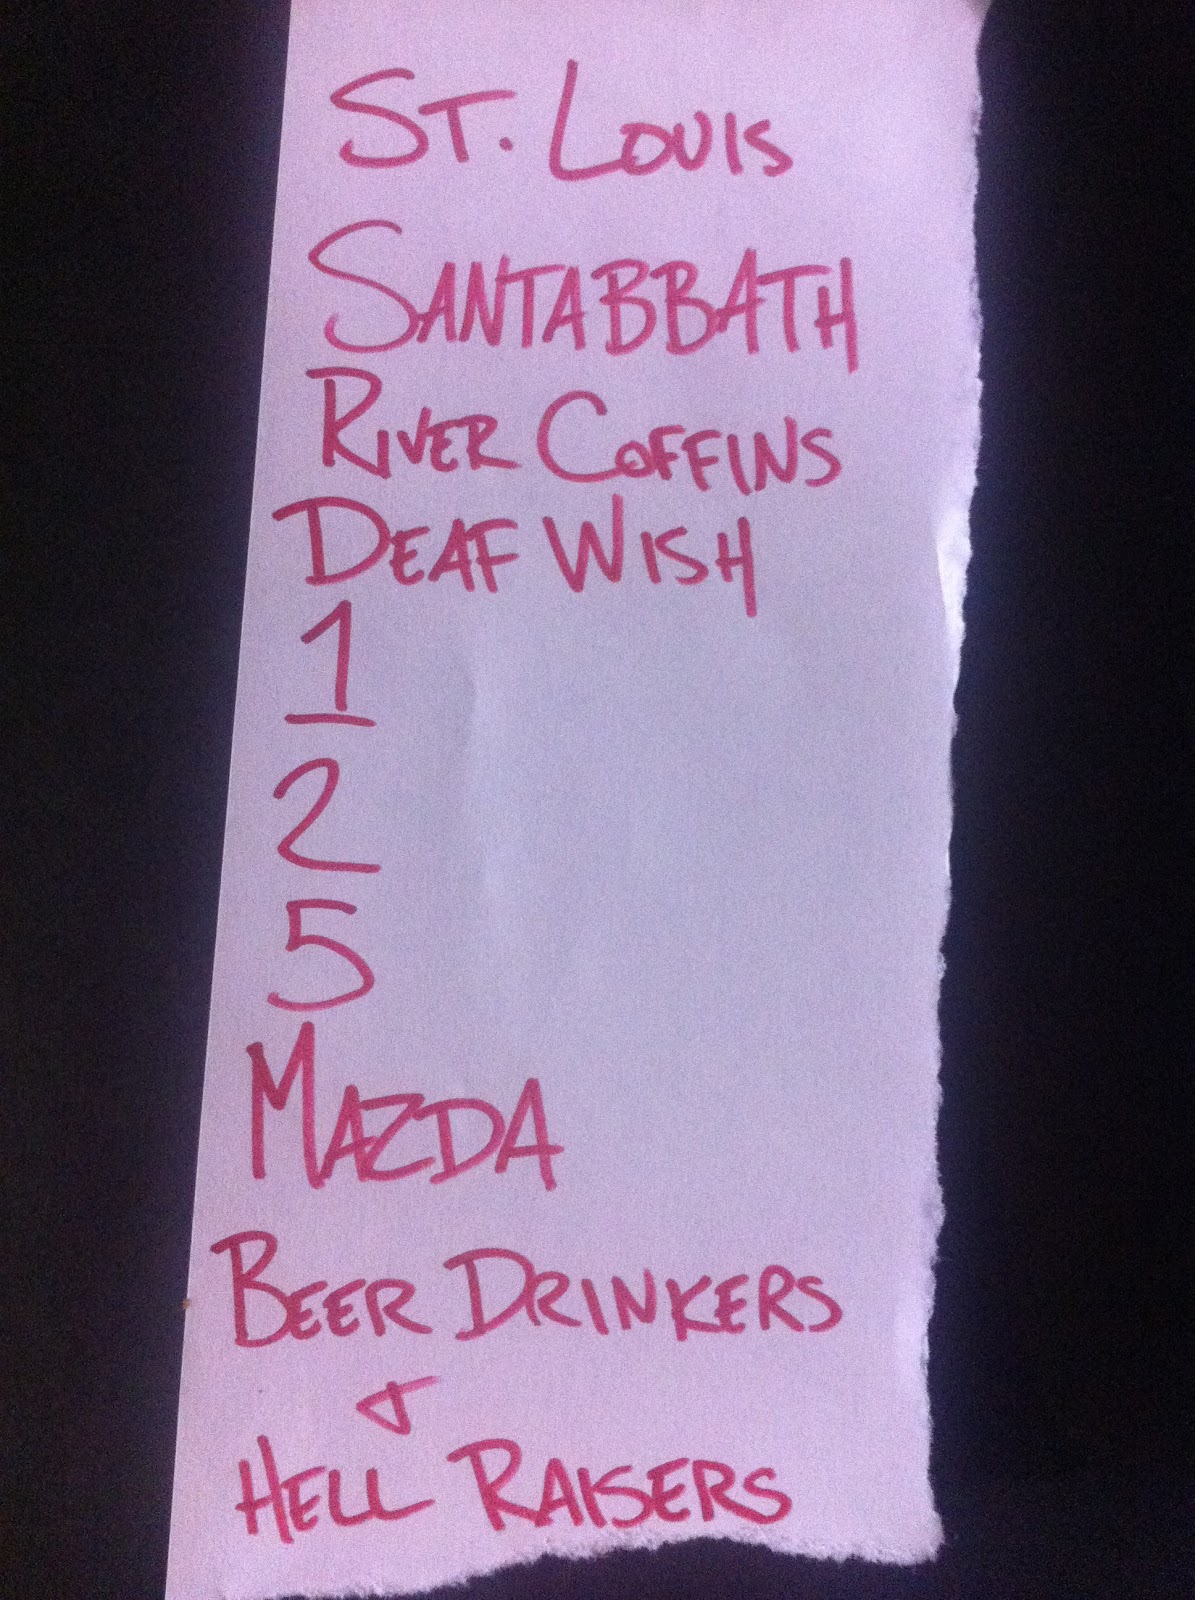 ST. LOUIS
SANTABBATH
RIVER COFFINS
DEAF WISH
1
2
5
MAZDA
BEER DRINKERS
&
HELL RAISERS